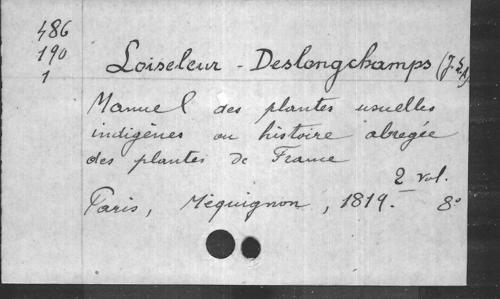 486
190
1
Loiseleur - Deslongchamps (J. L. A)
Manuel des plantes usuelles
indigènes ou histoire abregée
des plantes de France
2 vol.
Paris, Méquignon, 1819. 8°